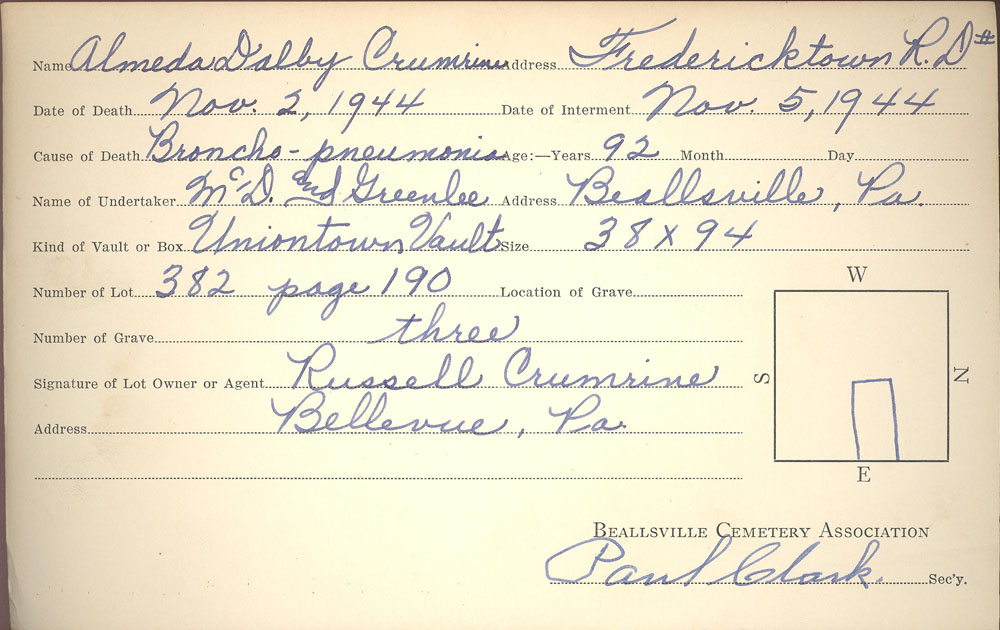 Name Almeda Dalby Crumrine Address Fredericktown R.D#
Date of Death Nov. 2, 1944 Date of Interment Nov. 5, 1944
Cause of Death Broncho-pneumonia Age:—Years 92 Month Day
Name of Undertaker McD. and Greenlee Address Beallsville, Pa.
Kind of Vault or Box Uniontown Vault Size 38 x 94
Number of Lot 382 page 190 Location of Grave
Number of Grave three
Signature of Lot Owner or Agent Russell Crumrine
Address Bellevue, Pa.
W
S
N
E
BEALLSVILLE CEMETERY ASSOCIATION
Paul Clark. Sec'y.